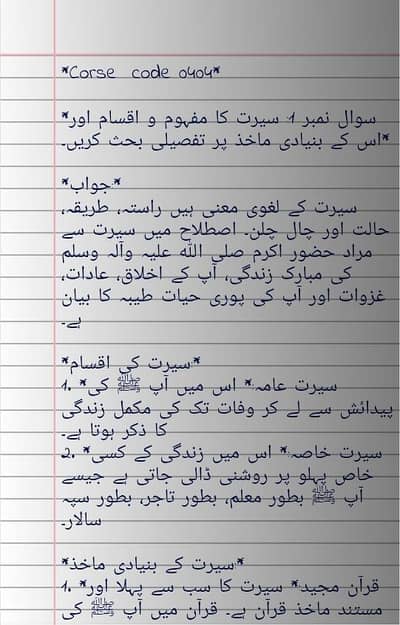 *Corse code 0404*
*سوال نمبر 1: سیرت کا مفہوم و اقسام اور
اس کے بنیادی ماخذ پر تفصیلی بحث کریں۔*
*جواب:*
سیرت کے لغوی معنی ہیں راستہ، طریقہ،
حالت اور چال چلن۔ اصطلاح میں سیرت سے
مراد حضور اکرم صلی اللہ علیہ وآلہ وسلم
کی مبارک زندگی، آپ کے اخلاق، عادات،
غزوات اور آپ کی پوری حیات طیبہ کا بیان
ہے۔
*سیرت کی اقسام:*
1. *سیرت عامہ:* اس میں آپ ﷺ کی
پیدائش سے لے کر وفات تک کی مکمل زندگی
کا ذکر ہوتا ہے۔
2. *سیرت خاصہ:* اس میں زندگی کے کسی
خاص پہلو پر روشنی ڈالی جاتی ہے جیسے
آپ ﷺ بطور معلم، بطور تاجر، بطور سپہ
سالار۔
*سیرت کے بنیادی ماخذ:*
1. *قرآن مجید:* سیرت کا سب سے پہلا اور
مستند ماخذ قرآن ہے۔ قرآن میں آپ ﷺ کی